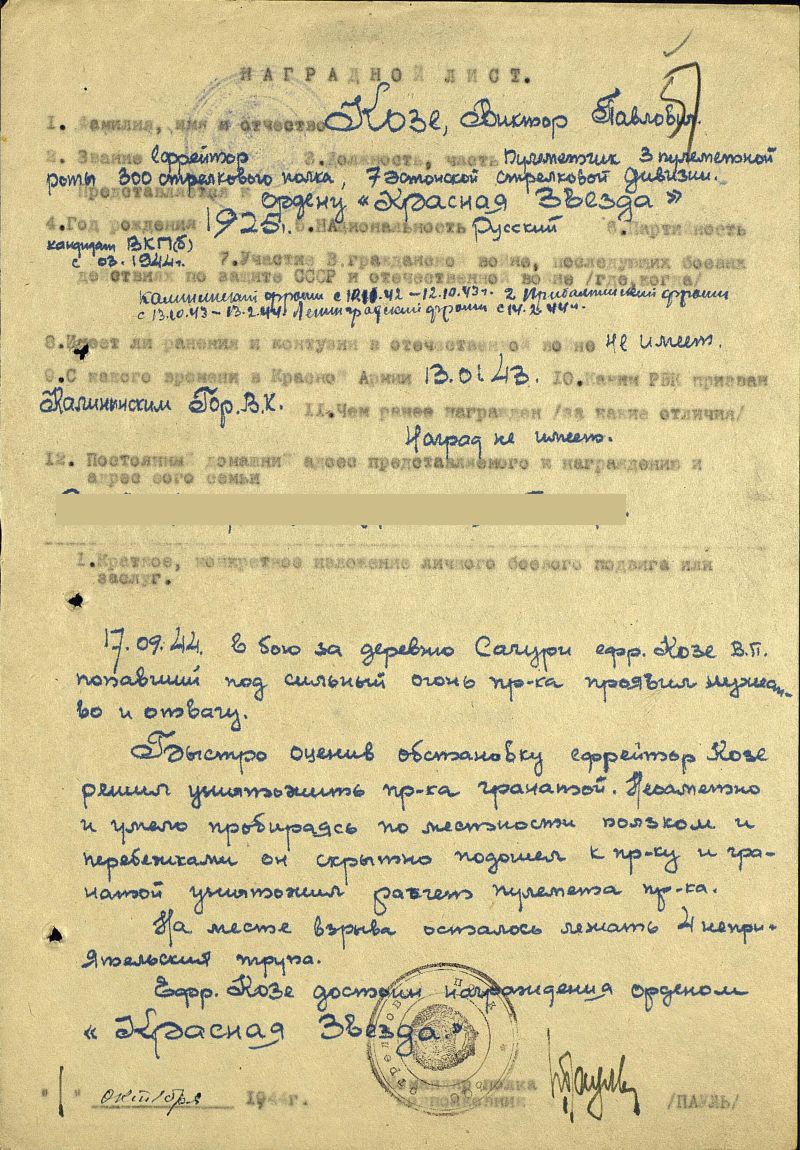 57
НАГРАДНОЙ ЛИСТ.
1. Фамилия, имя и отчество Козе, Виктор Павлович.
2. Звание Ефрейтор 3. Должность, часть Пулеметчик 3 пулеметной
роты 300 стрелкового полка, 7 Эстонской стрелковой Дивизии.
Представляется к ордену «Красная Звезда»
4. Год рождения 1925г. 5. Национальность Русский 6. Партийность
кандидат ВКП(б)
с 03.1944г. 7. Участие В гражданско войне, последующих боевых
действиях по защите СССР и отечественной войне /где, когда/
Калининский фронт с 12.10.42 – 12.10.43г. 2 Прибалтийский фронт
с 13.10.43 – 13.2.44 Ленинградский фронт с 14.2.44г.
8. Имеет ли ранения и контузии в отечественной войне не имеет.
9. С какого времени в Красной Армии 13.01.43. 10. Каким РВК призван
Калининским Гор.В.К. 11. Чем ранее награжден /за какие отличия/
Наград не имеет.
12. Постоянный домашни адрес представляемого к награждению и
адрес его семьи
1. Краткое, конкретное изложение личного боевого подвига или
заслуг.
17.09.44. в бою за деревню Сачури ефр. Козе В.П.
попавший под сильный огонь пр-ка проявил мужест-
во и отвагу.
Быстро оценив обстановку ефрейтор Козе
решил уничтожить пр-ка гранатой. Незаметно
и умело пробираясь по местности ползком и
перебежками он скрытно подошел к пр-ку и гра-
натой уничтожил расчет пулемета пр-ка.
На месте взрыва осталось лежать 4 непри-
ятельских трупа.
Ефр. Козе достоин награждения орденом
«Красная Звезда.»
"1" октября 1944г.
Командир полка
подполковник /ПАУЛЬ/